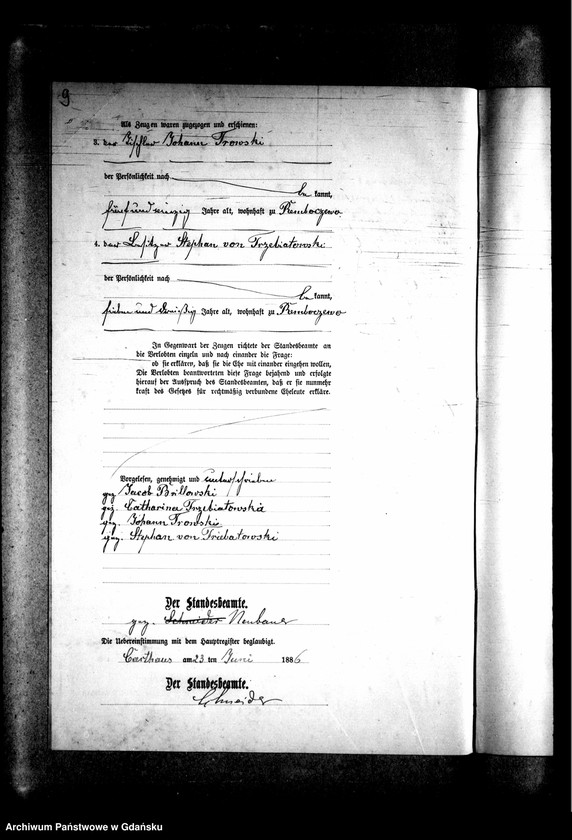 9
Als Zeugen waren zugezogen und erschienen:
3. der Tischler Johann Trowski
der Persönlichkeit nach
be kannt,
fünfundvierzig Jahre alt, wohnhaft zu Remboczewo
4. der Besitzer Stephan von Trzebiatowski
der Persönlichkeit nach
be kannt,
sieben und dreißig Jahre alt, wohnhaft zu Remboczewo
In Gegenwart der Zeugen richtete der Standesbeamte an
die Verlobten einzeln und nach einander die Frage:
ob sie erklären, daß sie die Ehe mit einander eingehen wollen,
Die Verlobten beantworteten diese Frage bejahend und erfolgte
hierauf der Ausspruch des Standesbeamten, daß er sie nunmehr
kraft des Gesetzes für rechtmäßig verbundene Eheleute erkläre.
Vorgelesen, genehmigt und unterschrieben
gez. Jacob Brillowski
gez. Catharina Trzebiatowska
gez. Johann Trowski
gez. Stephan von Triebatowski
Der Standesbeamte.
gez. Schneider Neubauer
Die Uebereinstimmung mit dem Hauptregister beglaubigt.
Carthaus am 23 ten Juni 1886
Der Standesbeamte.
Schneider
Archiwum Państwowe w Gdańsku